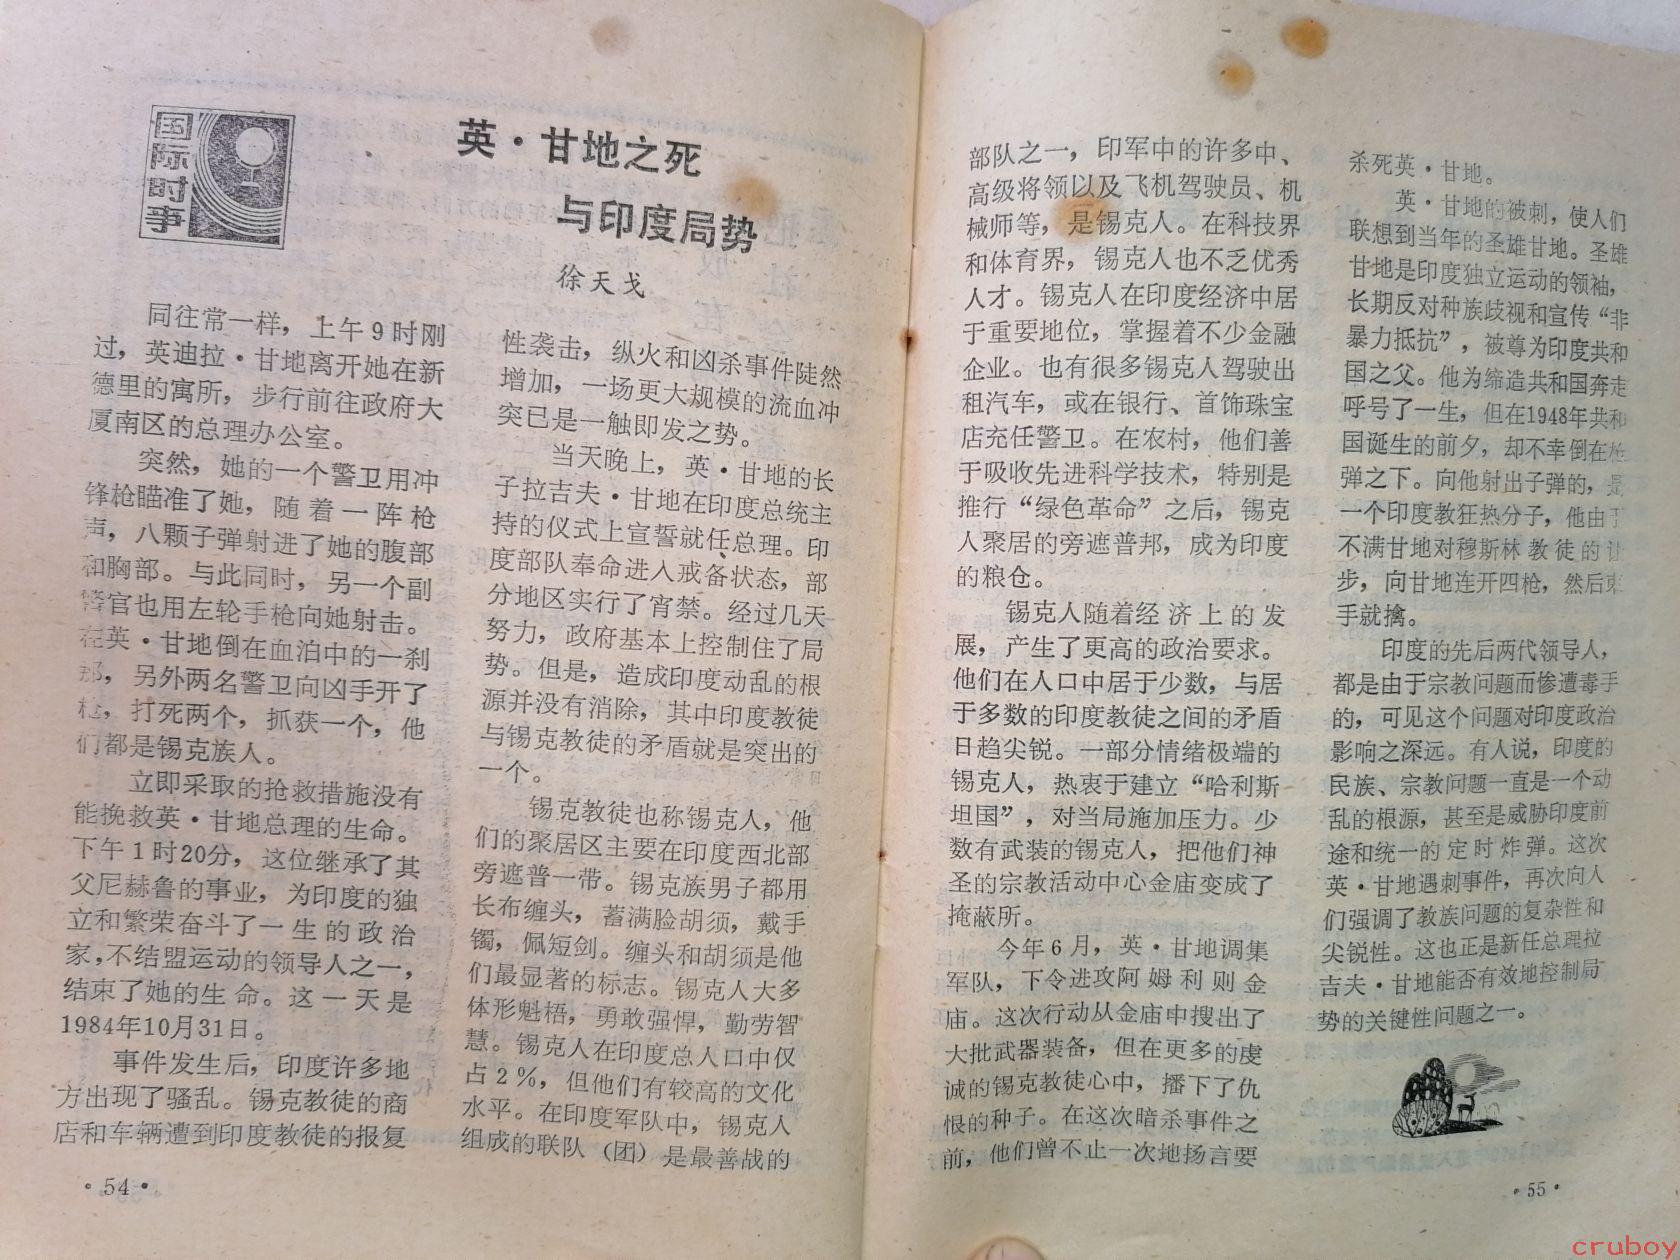 国际时事
英·甘地之死
与印度局势
徐天戈
同往常一样，上午9时刚
过，英迪拉·甘地离开她在新
德里的寓所，步行前往政府大
厦南区的总理办公室。
突然，她的一个警卫用冲
锋枪瞄准了她，随着一阵枪
声，八颗子弹射进了她的腹部
和胸部。与此同时，另一个副
警官也用左轮手枪向她射击。
在英·甘地倒在血泊中的一刹
那，另外两名警卫向凶手开了
枪，打死两个，抓获一个，他
们都是锡克族人。
立即采取的抢救措施没有
能挽救英·甘地总理的生命。
下午1时20分，这位继承了其
父尼赫鲁的事业，为印度的独
立和繁荣奋斗了一生的政治
家，不结盟运动的领导人之一，
结束了她的生命。这一天是
1984年10月31日。
事件发生后，印度许多地
方出现了骚乱。锡克教徒的商
店和车辆遭到印度教徒的报复
性袭击，纵火和凶杀事件陡然
增加，一场更大规模的流血冲
突已是一触即发之势。
当天晚上，英·甘地的长
子拉吉夫·甘地在印度总统主
持的仪式上宣誓就任总理。印
度部队奉命进入戒备状态，部
分地区实行了宵禁。经过几天
努力，政府基本上控制住了局
势。但是，造成印度动乱的根
源并没有消除，其中印度教徒
与锡克教徒的矛盾就是突出的
一个。
锡克教徒也称锡克人，他
们的聚居区主要在印度西北部
旁遮普一带。锡克族男子都用
长布缠头，蓄满脸胡须，戴手
镯，佩短剑。缠头和胡须是他
们最显著的标志。锡克人大多
体形魁梧，勇敢强悍，勤劳智
慧。锡克人在印度总人口中仅
占2%，但他们有较高的文化
水平。在印度军队中，锡克人
组成的联队（团）是最善战的
·54·
部队之一，印军中的许多中、
高级将领以及飞机驾驶员、机
械师等，是锡克人。在科技界
和体育界，锡克人也不乏优秀
人才。锡克人在印度经济中居
于重要地位，掌握着不少金融
企业。也有很多锡克人驾驶出
租汽车，或在银行、首饰珠宝
店充任警卫。在农村，他们善
于吸收先进科学技术，特别是
推行“绿色革命”之后，锡克
人聚居的旁遮普邦，成为印度
的粮仓。
锡克人随着经济上的发
展，产生了更高的政治要求。
他们在人口中居于少数，与居
于多数的印度教徒之间的矛盾
日趋尖锐。一部分情绪极端的
锡克人，热衷于建立“哈利斯
坦国”，对当局施加压力。少
数有武装的锡克人，把他们神
圣的宗教活动中心金庙变成了
掩蔽所。
今年6月，英·甘地调集
军队，下令进攻阿姆利则金
庙。这次行动从金庙中搜出了
大批武器装备，但在更多的虔
诚的锡克教徒心中，播下了仇
恨的种子。在这次暗杀事件之
前，他们曾不止一次地扬言要
杀死英·甘地。
英·甘地的被刺，使人们
联想到当年的圣雄甘地。圣雄
甘地是印度独立运动的领袖，
长期反对种族歧视和宣传“非
暴力抵抗”，被尊为印度共和
国之父。他为缔造共和国奔走
呼号了一生，但在1948年共和
国诞生的前夕，却不幸倒在枪
弹之下。向他射出子弹的，是
一个印度教狂热分子，他由于
不满甘地对穆斯林教徒的让
步，向甘地连开四枪，然后束
手就擒。
印度的先后两代领导人，
都是由于宗教问题而惨遭毒手
的，可见这个问题对印度政治
影响之深远。有人说，印度的
民族、宗教问题一直是一个动
乱的根源，甚至是威胁印度前
途和统一的定时炸弹。这次
英·甘地遇刺事件，再次向人
们强调了教族问题的复杂性和
尖锐性。这也正是新任总理拉
吉夫·甘地能否有效地控制局
势的关键性问题之一。
·55·
cruboy